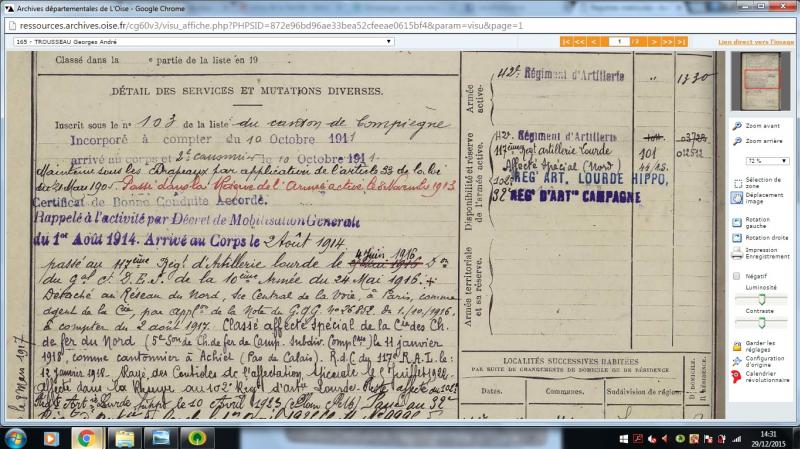 Archives départementales de L'Oise - Google Chrome
ressources.archives.oise.fr/cg60v3/visu_affiche.php?PHPSID=872e96bd96ae33bea52cfeeae0615bf4&param=visu&page=1
165 - TROUSSEAU Georges André
1 /2
Lien direct vers l'image
Classé dans la e partie de la liste en 19
DÉTAIL DES SERVICES ET MUTATIONS DIVERSES.
Inscrit sous le n° 103 de la liste du canton de Compiègne
Incorporé à compter du 10 Octobre 1911
arrivé au corps et 2e canonnier le 10 Octobre 1911
Maintenu sous les Drapeaux par application de l'article 33 de la loi
du 21 Mars 1905. Passé dans la Réserve de l'Armée active le 8 Novembre 1913
Certificat de Bonne Conduite Accordé.
Rappelé à l'activité par Décret de Mobilisation Générale
du 1er Août 1914. Arrivé au Corps le 2 Août 1914
4 Juin 1916
passé au 117ème Régt d'Artillerie lourde le
du gal de la 10ème Armée du 24 Mai 1916. +
Détaché au Réseau du Nord, Sce Central de la Voie, à Paris, comme
agent de la Cie, par applon de la Note du G.Q.G. no du 1/10/1916.
à compter du 2 août 1917. Classé affecté spécial de la Cie des Ch.
de fer du Nord (5e Son de Ch. de fer de Camp. Subdiv. Complre) le 11 janvier
1918, comme cantonnier à Achiet (Pas de Calais). R.d.C du 117e R.A.L. le:
12 janvier 1918. Rayé des Contrôles de l'affectation spéciale le 1
affecté dans la Réserve au 102e Régt d'artie Lourde.
Lourde hippo le 10 Avril 1923 Passé au 32e
le 9 Mars 1917
Armée active.
112e Régiment d'Artillerie
" 1330
Disponibilité et réserve de l'armée active.
112e Régiment d'Artillerie
117ème Régt artillerie Lourde 101
Affecté Spécial (Nord)
102e REG' ART. LOURDE HIPPO,
32e REG' D'ART'ie CAMPAGNE
Armée territoriale et sa réserve.
LOCALITÉS SUCCESSIVES HABITÉES
PAR SUITE DE CHANGEMENTS DE DOMICILE OU DE RÉSIDENCE
Dates. Communes. Subdivision de région. D. DOMICILE R. RÉSIDENCE.
Zoom avant
Zoom arrière
72 %
Sélection de zone
Déplacement image
Rotation gauche
Rotation droite
Impression
Enregistrement
Négatif
Luminosité
Contraste
Garder les réglages
Configuration d'origine
Calendrier révolutionnaire
14:31
29/12/2015